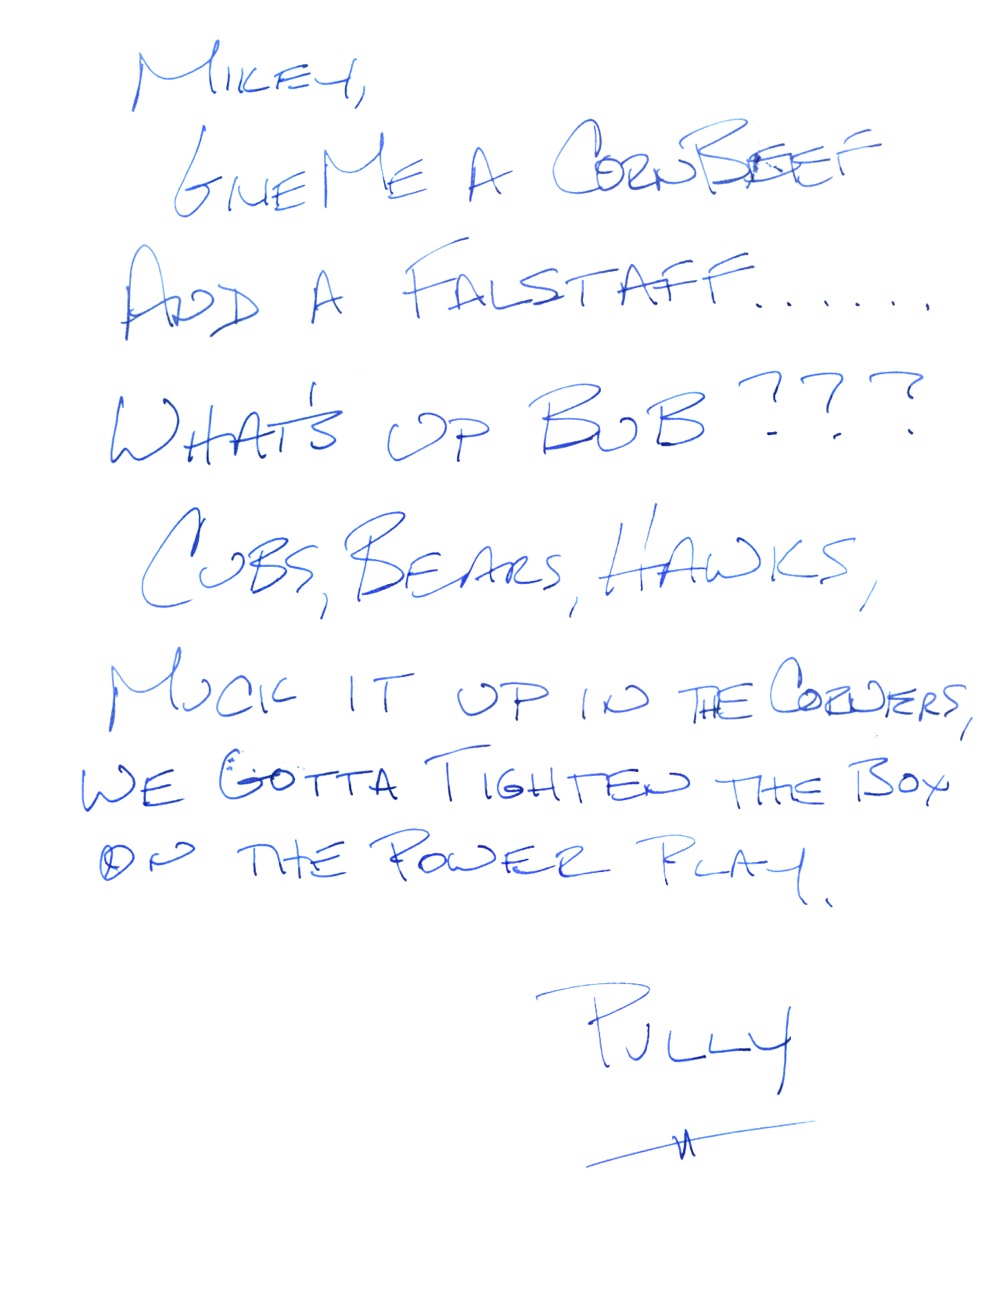 MIKEY,
GIVE ME A CORNBEEF
AND A FALSTAFF.......
WHAT'S UP BOB ???
CUBS, BEARS, HAWKS,
MUCK IT UP IN THE CORNERS,
WE GOTTA TIGHTEN THE BOX
ON THE POWER PLAY.
PULLY